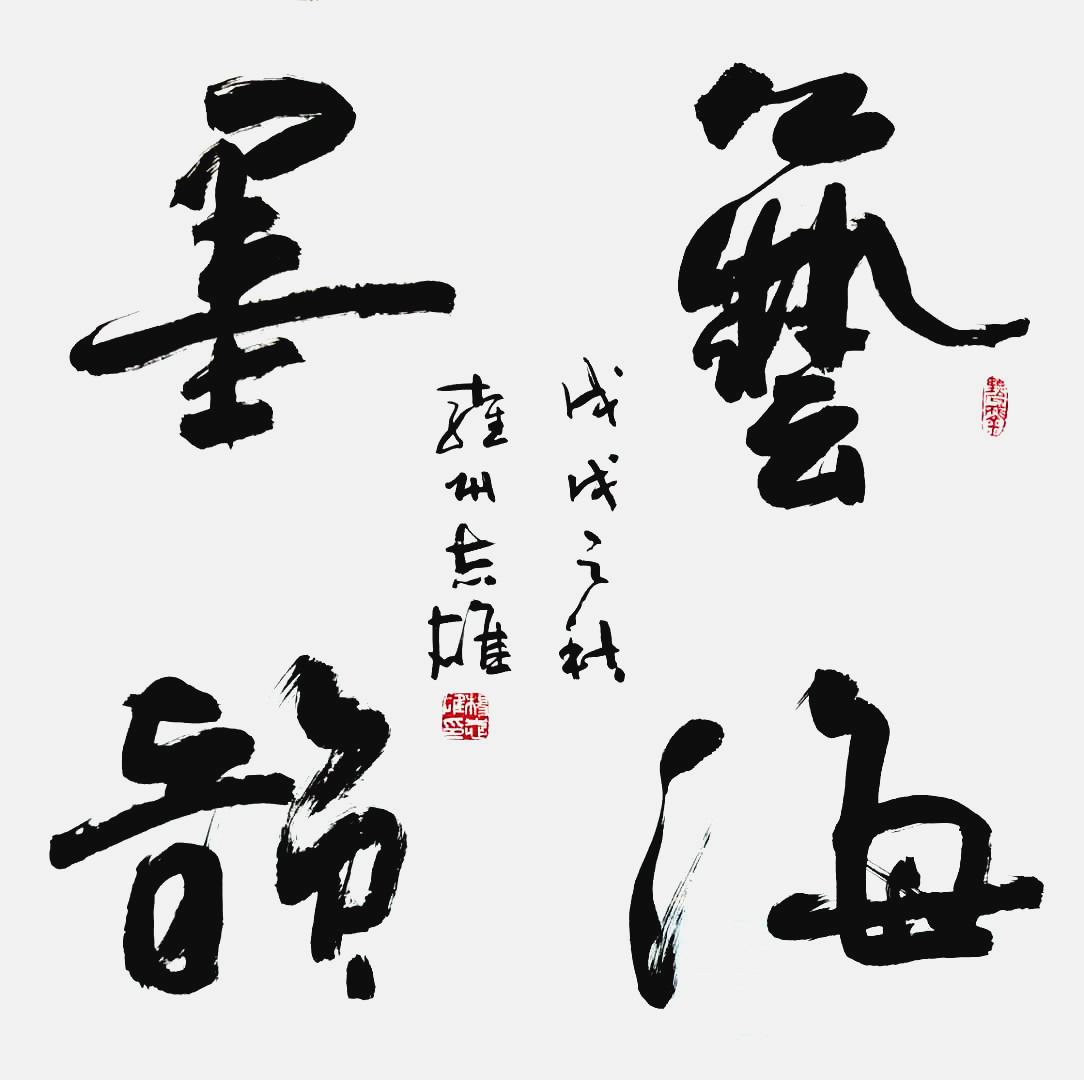 藝海
墨韻
戊戌之秋
雍州志雄